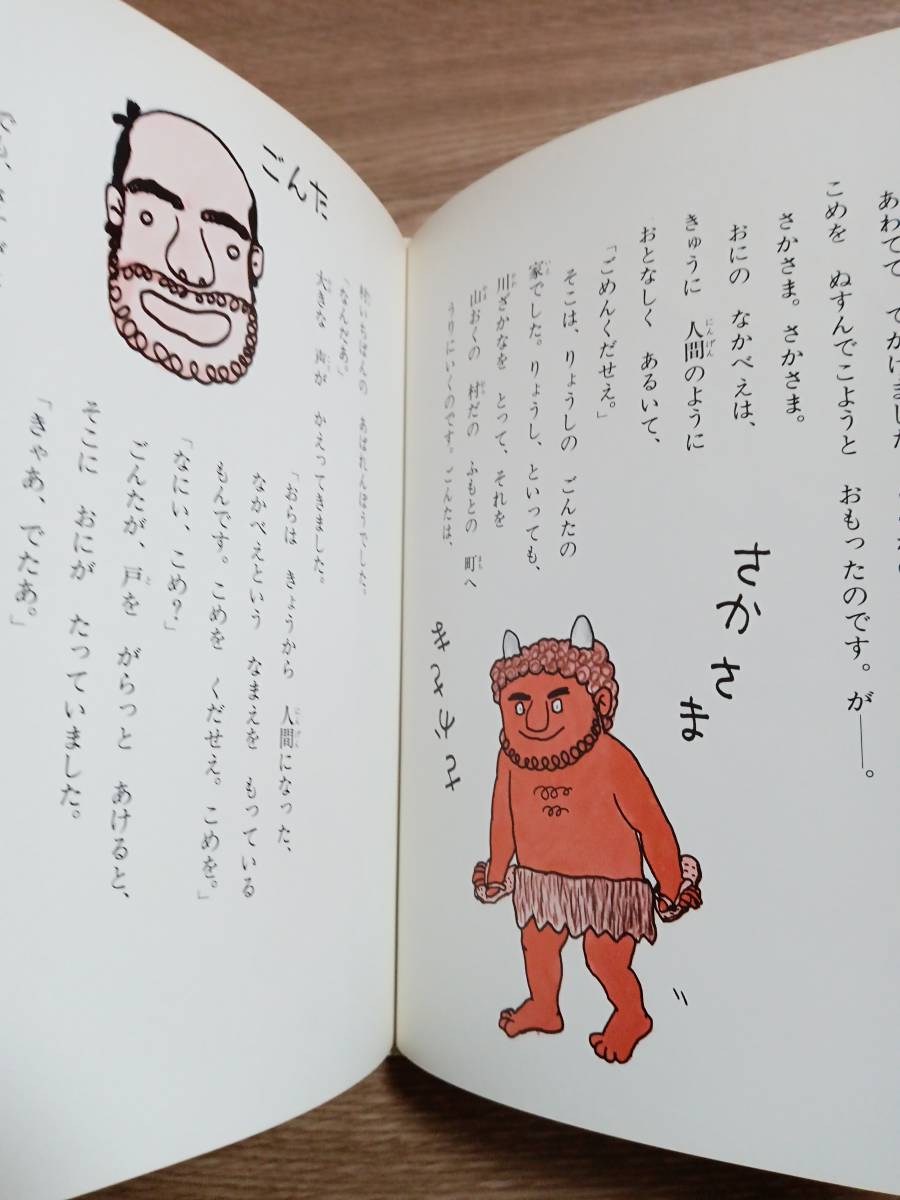 あわてて でかけました
こめを ぬすんでこようと おもったのです。が——。
さかさま。さかさま。
おにの なかべえは、
きゅうに 人間のように
おとなしく あるいて、
「ごめんくだせえ。」
そこは、りょうしの ごんたの
家でした。りょうし、といっても、
川ざかなを とって、それを
山おくの 村だの ふもとの 町へ
うりにいくのです。ごんたは、
さかさま
ごんた
村いちばんの あばれんぼうでした。
「なんだあ。」
大きな 声が かえってきました。
「おらは きょうから 人間になった、
なかべえという なまえを もっている
もんです。こめを くだせえ。こめを。」
「なにい、こめ?」
ごんたが、戸を がらっと あけると、
そこに おにが たっていました。
「きゃあ、でたあ。」
「でも、